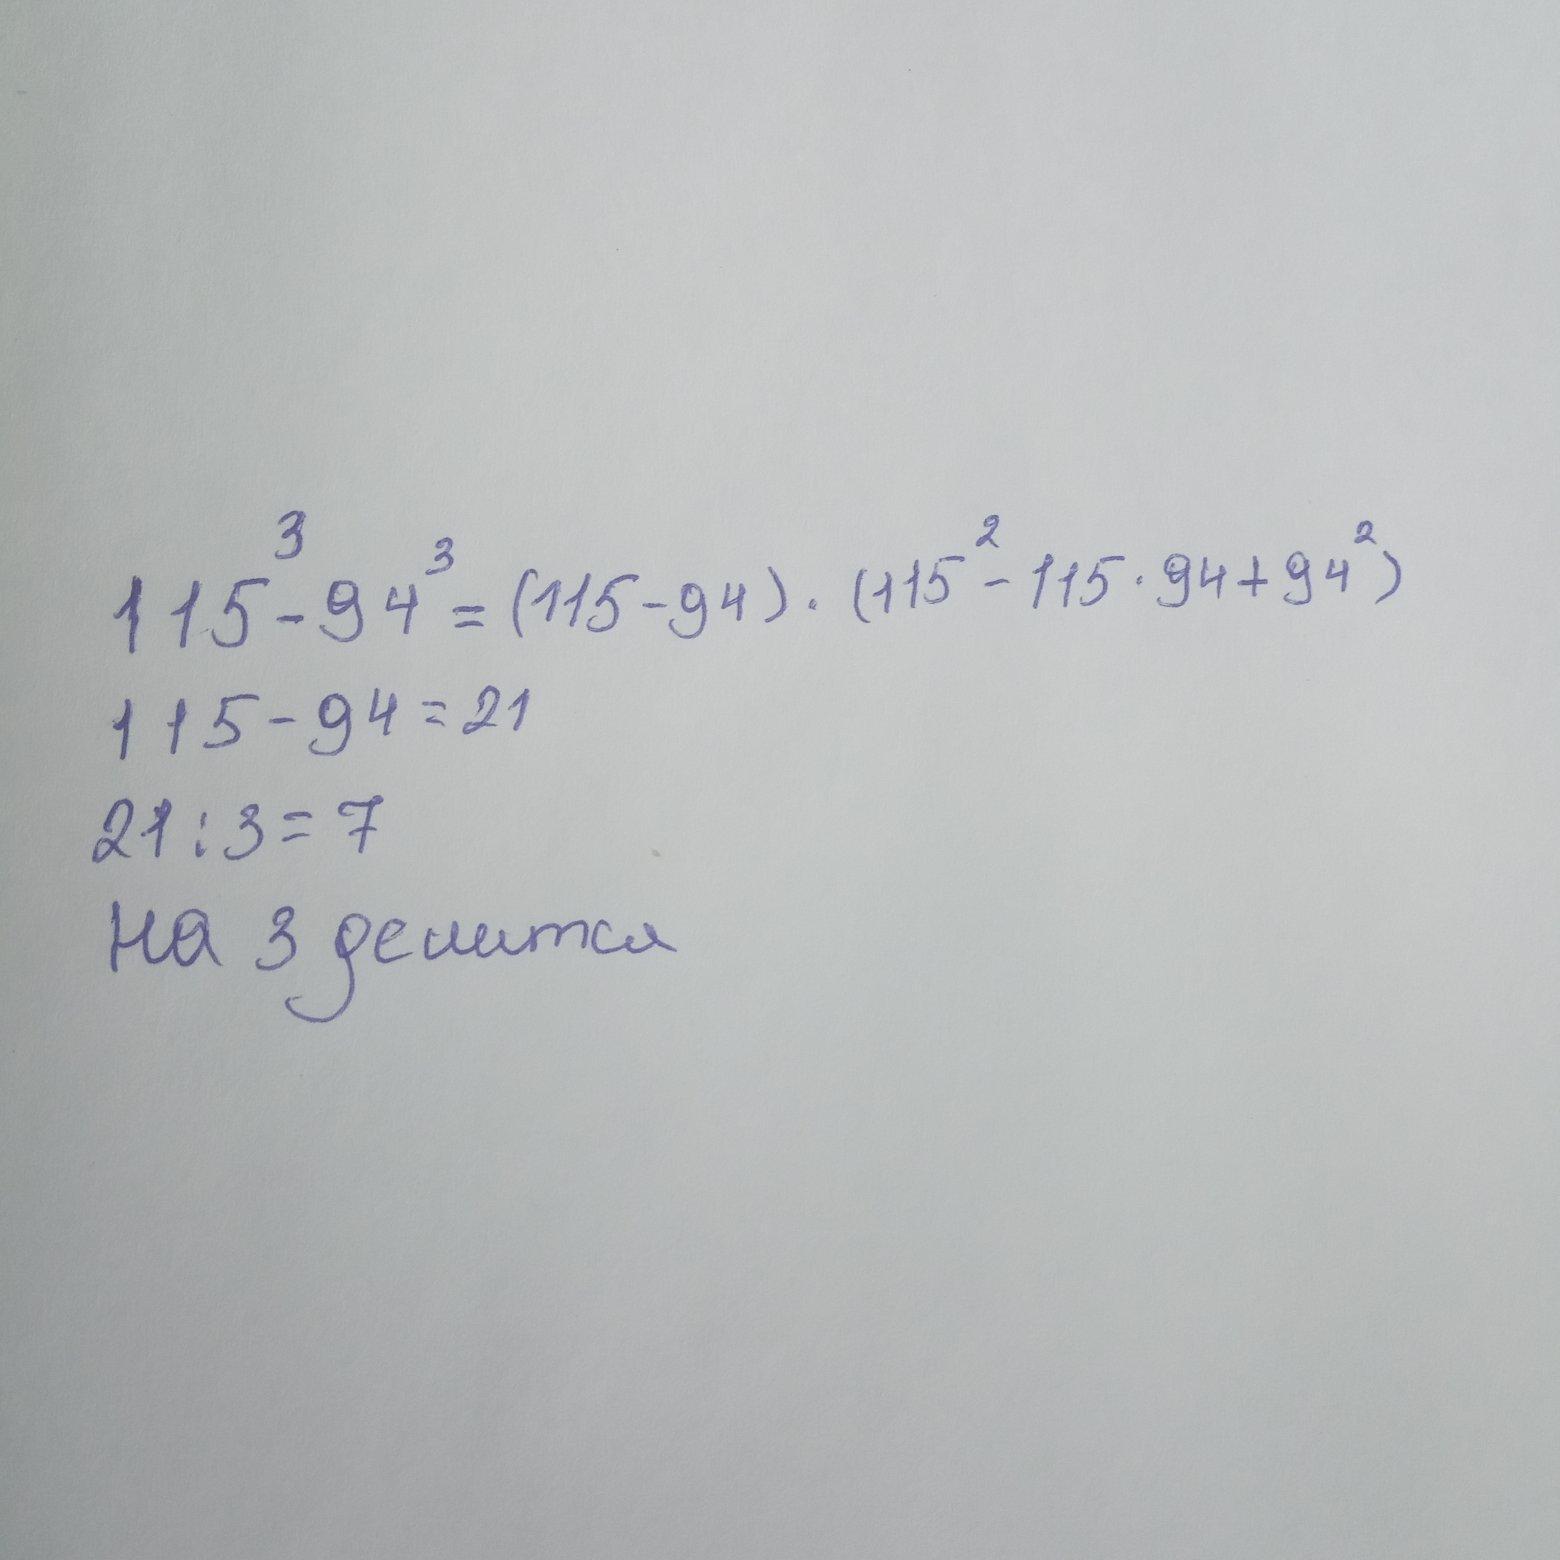 115³-94³=(115-94)·(115²-115·94+94²)
115-94=21
21:3=7
на 3 делится